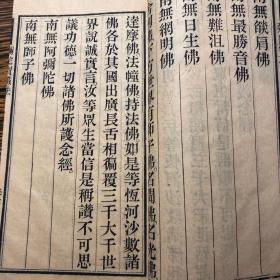 南無燄肩佛
南無最勝音佛
南無難沮佛
南無日生佛
南無網明佛
下方世界有師子佛名聞佛名光佛
達摩佛法幢佛持法佛如是等恆河沙數諸
佛各於其國出廣長舌相徧覆三千大千世
界說誠實言汝等眾生當信是稱讚不可思
議功德一切諸佛所護念經
南無阿彌陀佛
南無師子佛